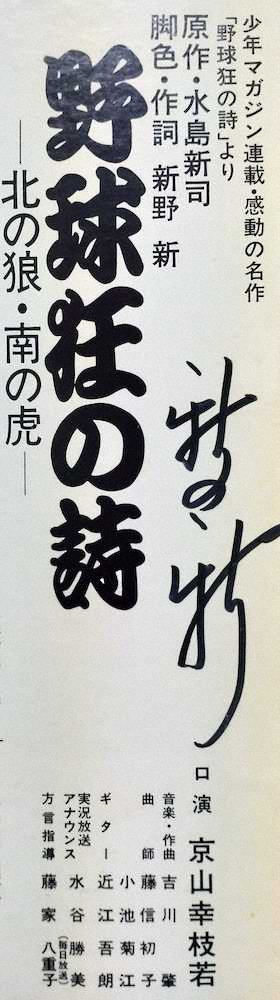 少年マガジン連載・感動の名作
「野球狂の詩」より
原作・水島新司
脚色・作詞 新野 新
野球狂の詩
―北の狼・南の虎―
新野新
口演 京山幸枝若
音楽・作曲 吉川 肇
曲師 藤信初子
小池菊江
ギター 近江吾朗
実況放送
アナウンス 水谷勝美(毎日放送)
方言指導 藤家八重子